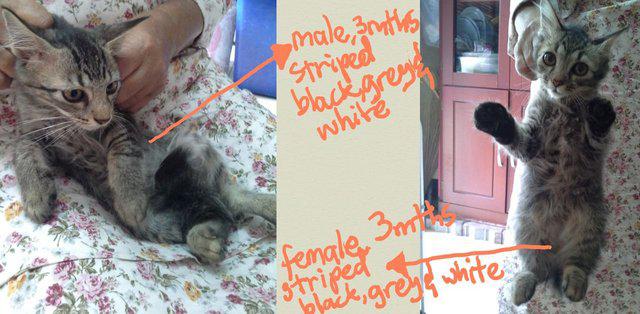 male, 3mths
striped
black, grey &
white
female, 3mths
striped
black, grey & white